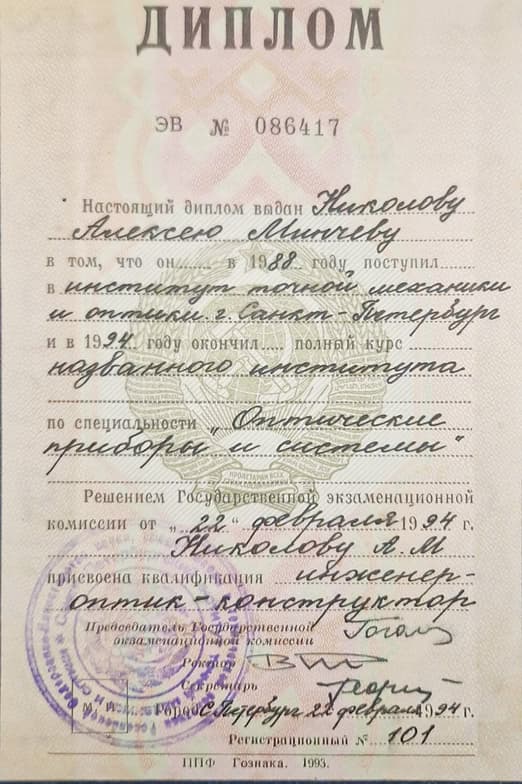 ДИПЛОМ
ЭВ № 086417
Настоящий диплом выдан Николову
Алексею Минчеву
в том, что он в 1988 году поступил
в институт точной механики
и оптики г. Санкт-Петербург
и в 1994 году окончил полный курс
названного института
по специальности „Оптические
приборы и системы"
ПРОЛЕТАРИИ ВСЕХ
Решением Государственной экзаменационной
комиссии от „22" февраля 1994 г.
Николову А.М
присвоена квалификация инженер-
оптик-конструктор
Председатель Государственной
экзаменационной комиссии
Ректор
Секретарь
М. Город С.Петербург 22 февраля 1994 г.
Регистрационный № 101
ППФ Гознака. 1993.